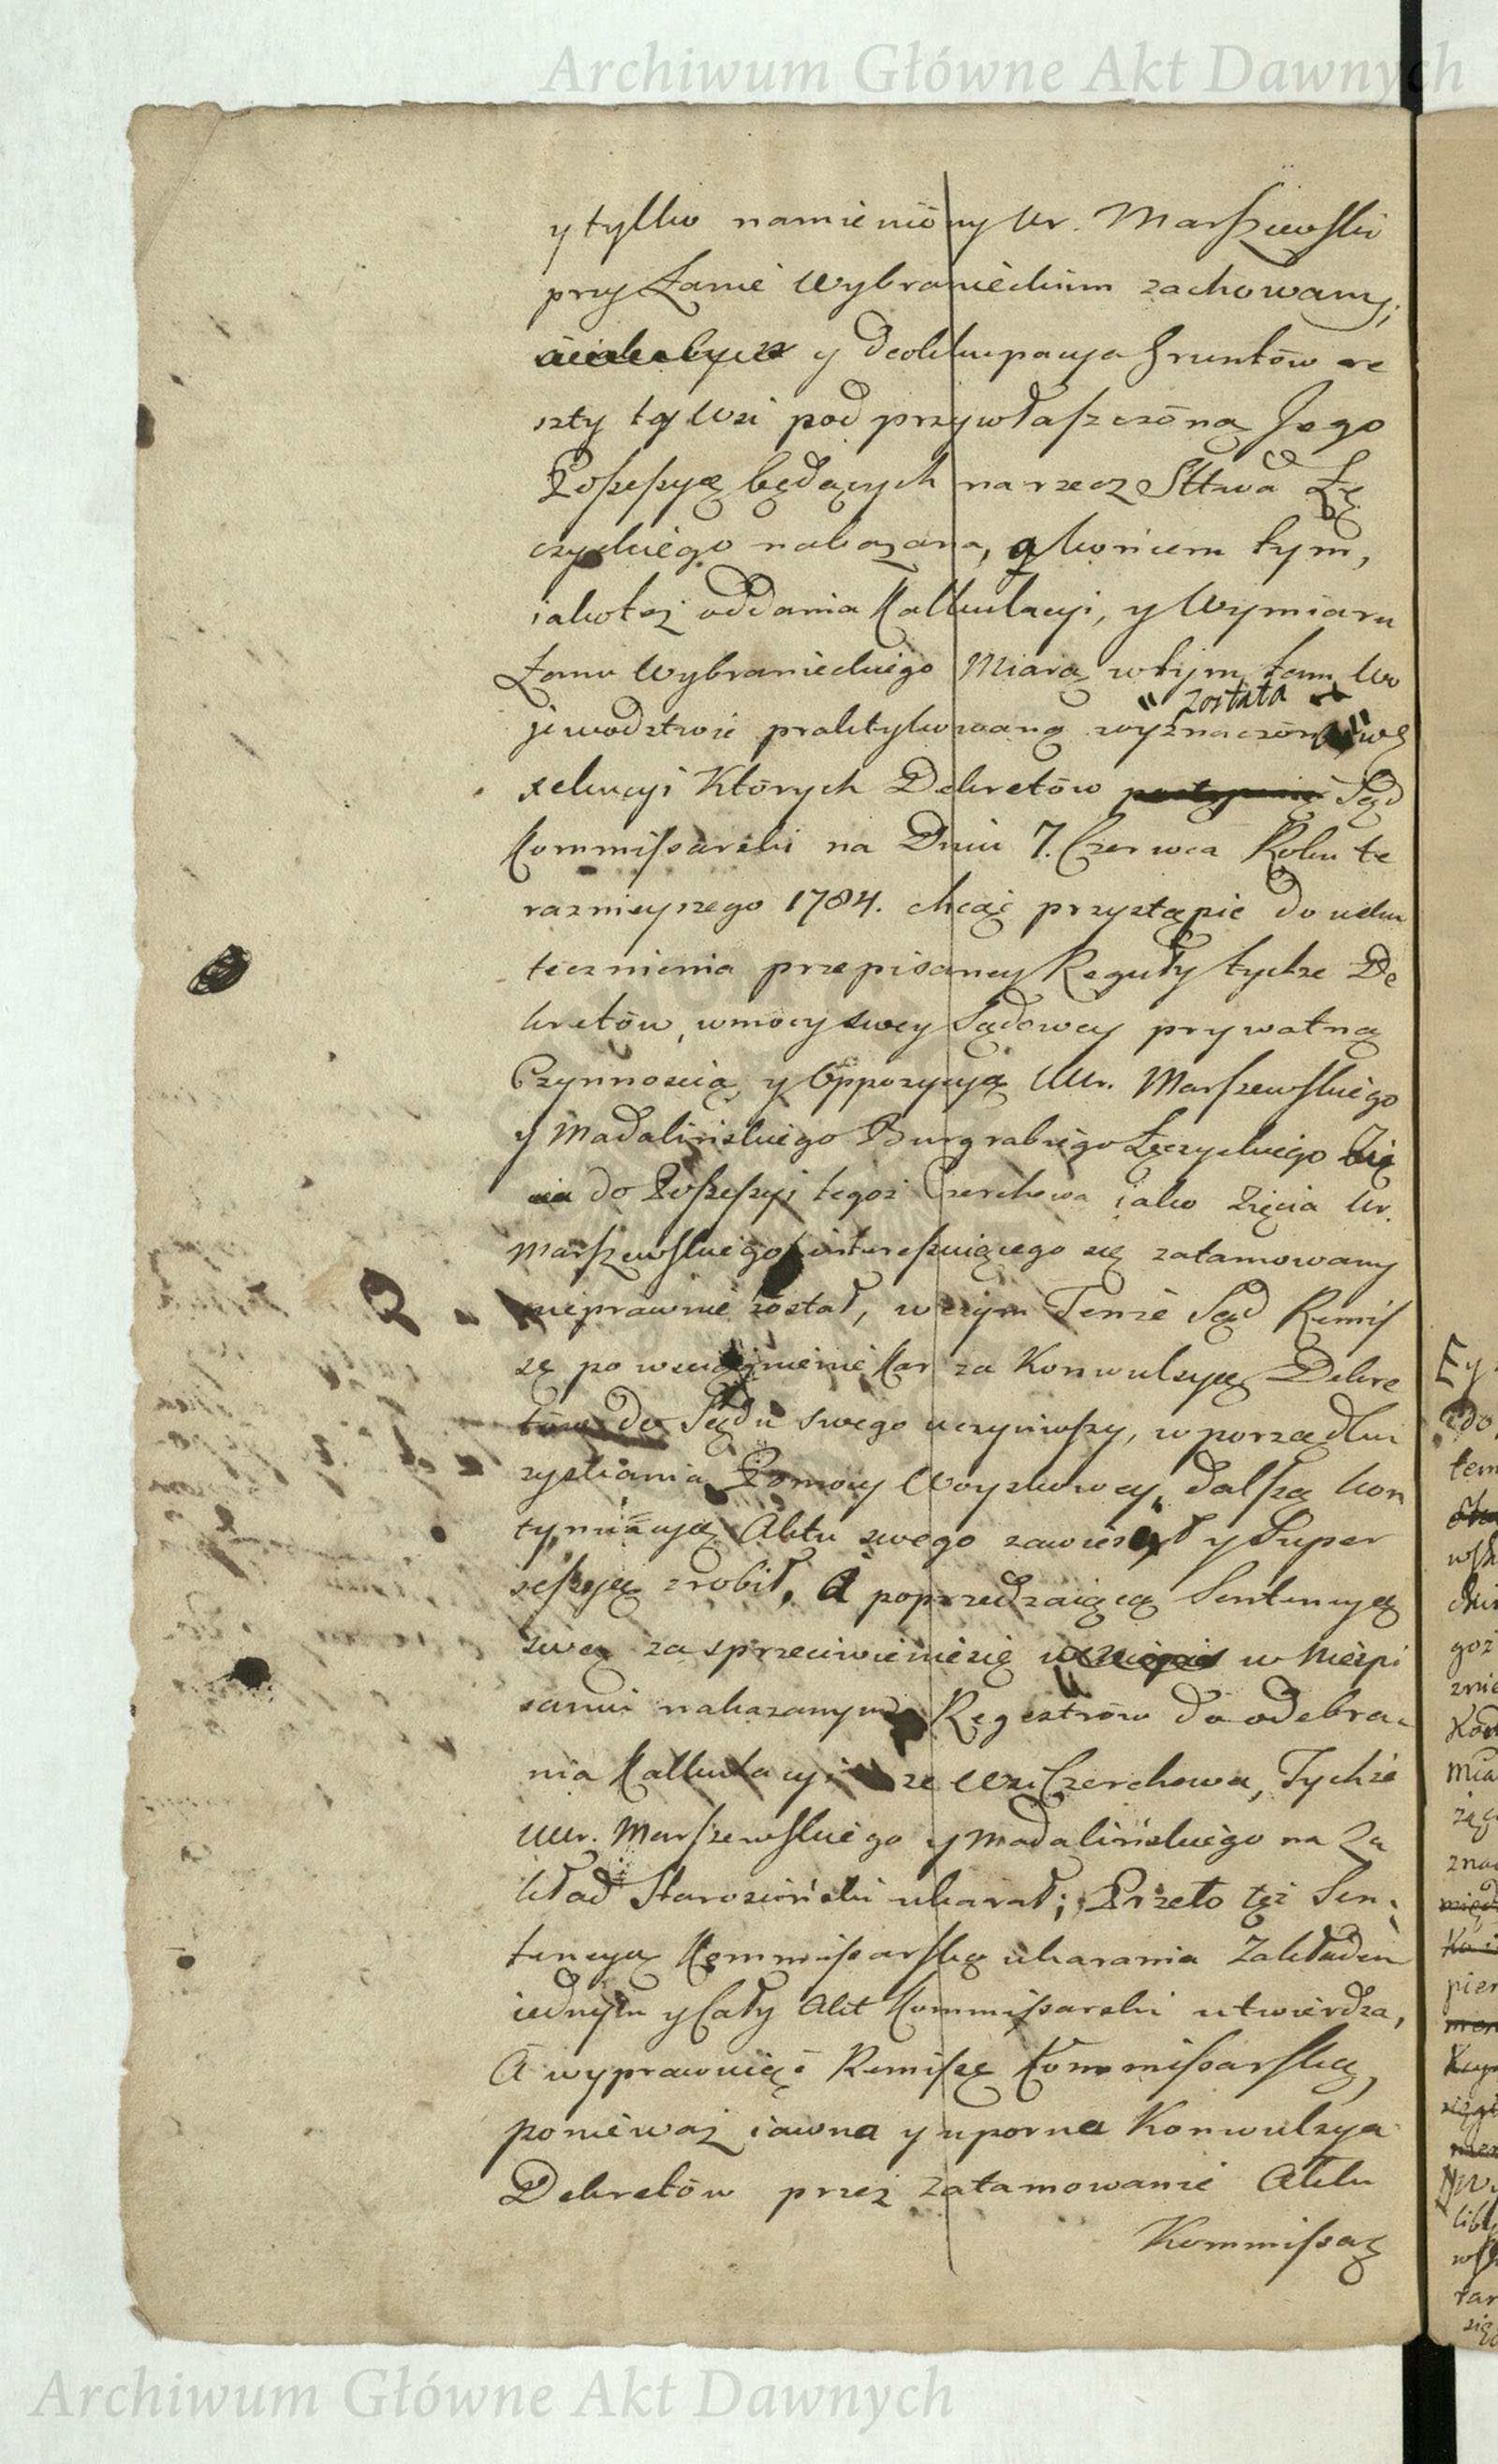 Archiwum Główne Akt Dawnych
y tylko namieniony Ur. Marszewski
przy Łanie Wybranieckim zachowany,
y Deokkupacya Gruntów re
szty tey Wsi pod przywłaszczoną Jego
Possessyą będących na rzecz Sttwa Łę
czyckiego nakazana, z końcem tym,
iakoteż oddania Kalkulacyi, y Wymiaru
Łanu Wybranieckiego Miarą w tym tam Wo
jewodztwie praktykowaną wyznaczona
została
xekucyi Których Dekretów Sąd
Kommissarski na Dniu 7. Czerwca Roku te
raznieyszego 1784. chcąc przystąpić do usku
tecznienia przepisaney Reguły tychże De
kretów, w mocy swey Sądowey prywatną
Czynnoscią y Oppozycyą UUr. Marszewskiego
y Madalińskiego Burgrabiego Łęczyckiego
do Possessyi tegoż Czerchowa iako Zięcia Ur.
Marszewskiego interessuiącego się zatamowany
nieprawnie został, w czym Tenże Sąd Remis
sę po wsciągnienie Kar za Konwulsyą Dekre
tów do Sądu swego uczyniwszy, w porządku
zyskania Pomocy Woyskowey, dalszą kon
tynuacyą Aktu swego zawiesił y Super
sessyą zrobił, A poprzedzaiącą Sentencyą
swą za sprzeciwienie się w Niespi
saniu nakazanym Regestrów do odebra-
nia Kalkulacyi ze Wsi Czerchowa, Tychże
UUr. Marszewskiego y Madalińskiego na Za
kład Starosciński ukarał; Przeto też Sen-
tencyą Kommissarską ukarania Zakładem
iednym y Cały Akt Kommissarski utwierdza,
A wyprawuiąc Remissę Kommissarską,
ponieważ iawna y uporna Konwulsya
Dekretów przez zatamowanie Aktu
Kommissar
Archiwum Główne Akt Dawnych